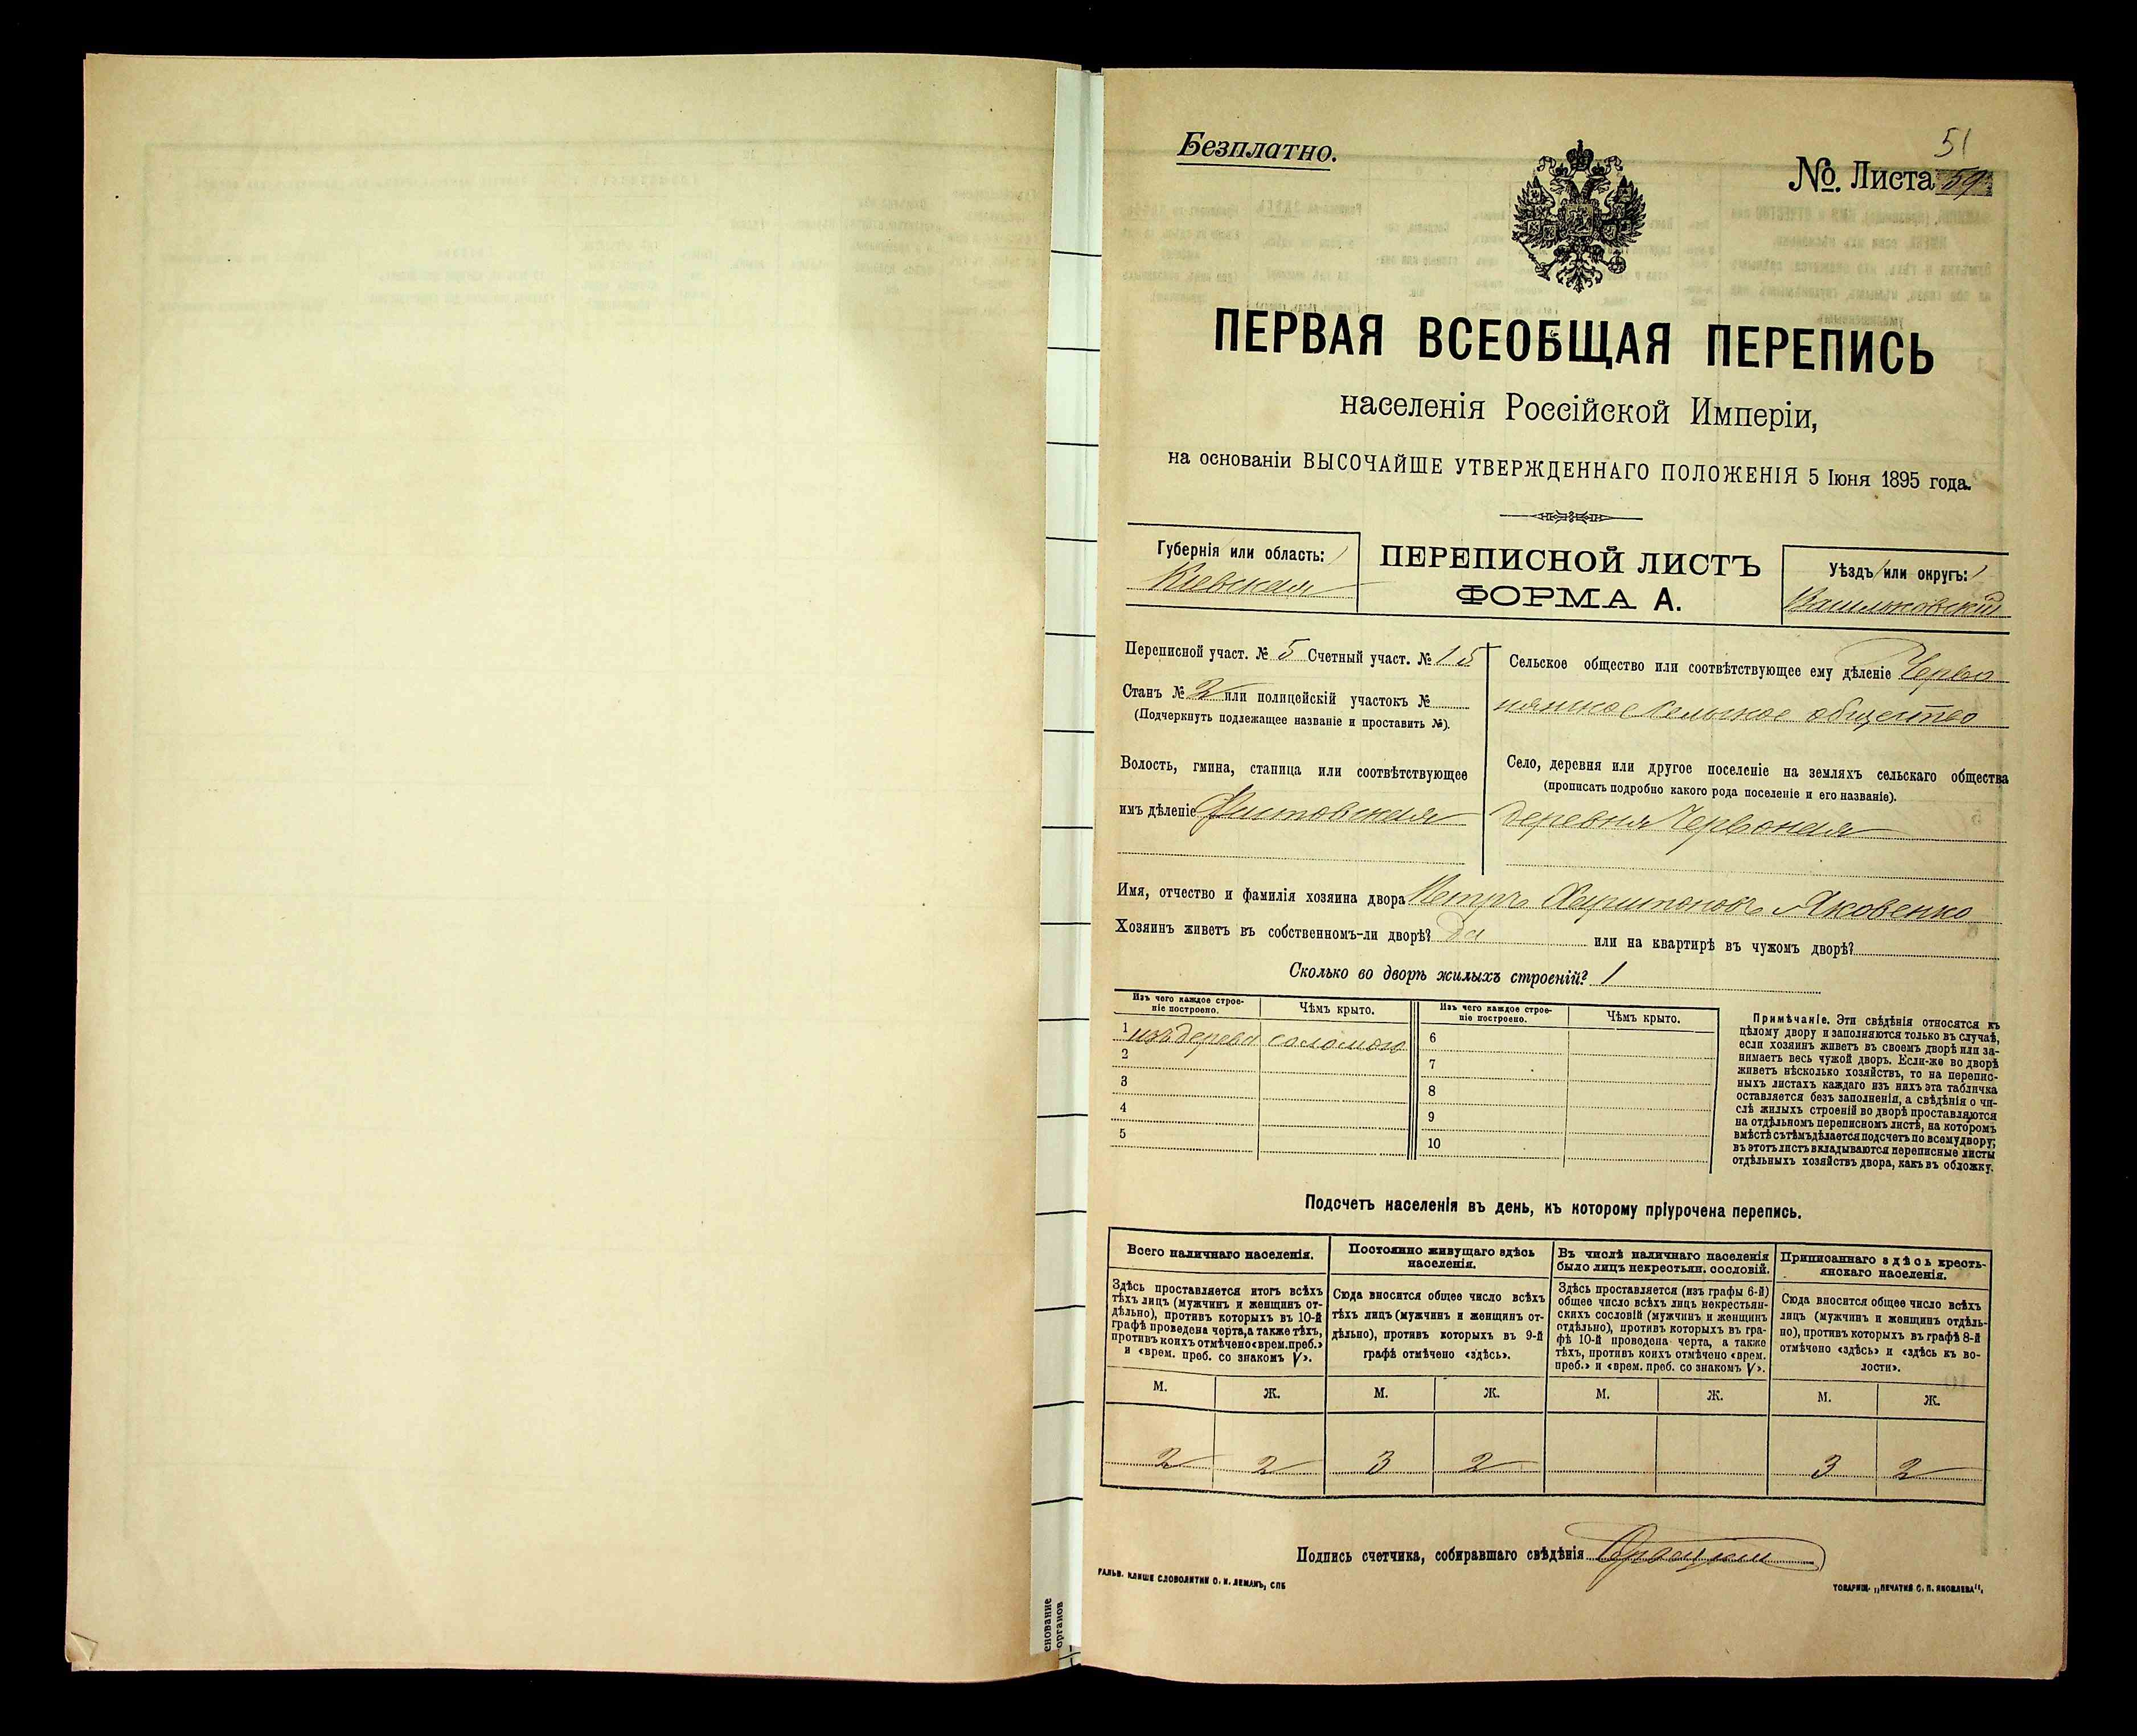 51
Безплатно.
№. Листа 59
ПЕРВАЯ ВСЕОБЩАЯ ПЕРЕПИСЬ
населенія Россійской Имперіи,
на основаніи ВЫСОЧАЙШЕ УТВЕРЖДЕННАГО ПОЛОЖЕНІЯ 5 Іюня 1895 года.
Губернія или область:
Кіевская
ПЕРЕПИСНОЙ ЛИСТЪ
ФОРМА А.
Уѣздъ или округъ:
Васильковскій
Переписной участ. № 5 Счетный участ. № 15
Станъ № 2 или полицейскій участокъ №
(Подчеркнуть подлежащее названіе и проставить №).
Волость, гмина, станица или соотвѣтствующее
имъ дѣленіе
Сельское общество или соотвѣтствующее ему дѣленіе Черво
нянское сельское общество
Село, деревня или другое поселеніе на земляхъ сельскаго общества
(прописать подробно какого рода поселеніе и его названіе).
деревня Червоная
Имя, отчество и фамилія хозяина двора Петръ Харитоновъ Яковенко
Хозяинъ живетъ въ собственномъ-ли дворѣ? да или на квартирѣ въ чужомъ дворѣ?
Сколько во дворѣ жилыхъ строеній? 1
Изъ чего каждое строе-
ніе построено.
Чѣмъ крыто.
Изъ чего каждое строе-
ніе построено.
Чѣмъ крыто.
1 изъ дерева соломою
2
3
4
5
6
7
8
9
10
Примѣчаніе. Эти свѣдѣнія относятся къ
цѣлому двору и заполняются только въ случаѣ,
если хозяинъ живетъ въ своемъ дворѣ или за-
нимаетъ весь чужой дворъ. Если-же во дворѣ
живетъ нѣсколько хозяйствъ, то на перепис-
ныхъ листахъ каждаго изъ нихъ эта табличка
оставляется безъ заполненія, а свѣдѣнія о чи-
слѣ жилыхъ строеній во дворѣ проставляются
на отдѣльномъ переписномъ листѣ, на которомъ
вмѣстѣ съ тѣмъ дѣлается подсчетъ по всему двору;
въ этотъ листъ вкладываются переписные листы
отдѣльныхъ хозяйствъ двора, какъ въ обложку.
Подсчетъ населенія въ день, къ которому пріурочена перепись.
Всего наличнаго населенія.
Здѣсь проставляется итогъ всѣхъ
тѣхъ лицъ (мужчинъ и женщинъ от-
дѣльно), противъ которыхъ въ 10-й
графѣ проведена черта, а также тѣхъ,
противъ коихъ отмѣчено «врем. преб.»
и «врем. преб. со знакомъ V».
Постоянно живущаго здѣсь
населенія.
Сюда вносится общее число всѣхъ
тѣхъ лицъ (мужчинъ и женщинъ от-
дѣльно), противъ которыхъ въ 9-й
графѣ отмѣчено «здѣсь».
Въ числѣ наличнаго населенія
было лицъ некрестьян. сословій.
Здѣсь проставляется (изъ графы 6-й)
общее число всѣхъ лицъ некрестьян-
скихъ сословій (мужчинъ и женщинъ
отдѣльно), противъ которыхъ въ гра-
фѣ 10-й проведена черта, а также
тѣхъ, противъ коихъ отмѣчено «врем.
преб.» и «врем. преб. со знакомъ V».
Приписаннаго здѣсь кресть-
янскаго населенія.
Сюда вносится общее число всѣхъ
лицъ (мужчинъ и женщинъ отдѣль-
но), противъ которыхъ въ графѣ 8-й
отмѣчено «здѣсь» и «здѣсь къ во-
лости».
М. Ж. М. Ж. М. Ж. М. Ж.
2 2 3 2 3 2
Подпись счетчика, собиравшаго свѣдѣнія
ГАЛЬВ. КЛИШЕ СЛОВОЛИТНИ О. И. ЛЕМАНЪ, СПБ
ТОВАРИЩ. „ПЕЧАТНЯ С. П. ЯКОВЛЕВА".
енование
органов